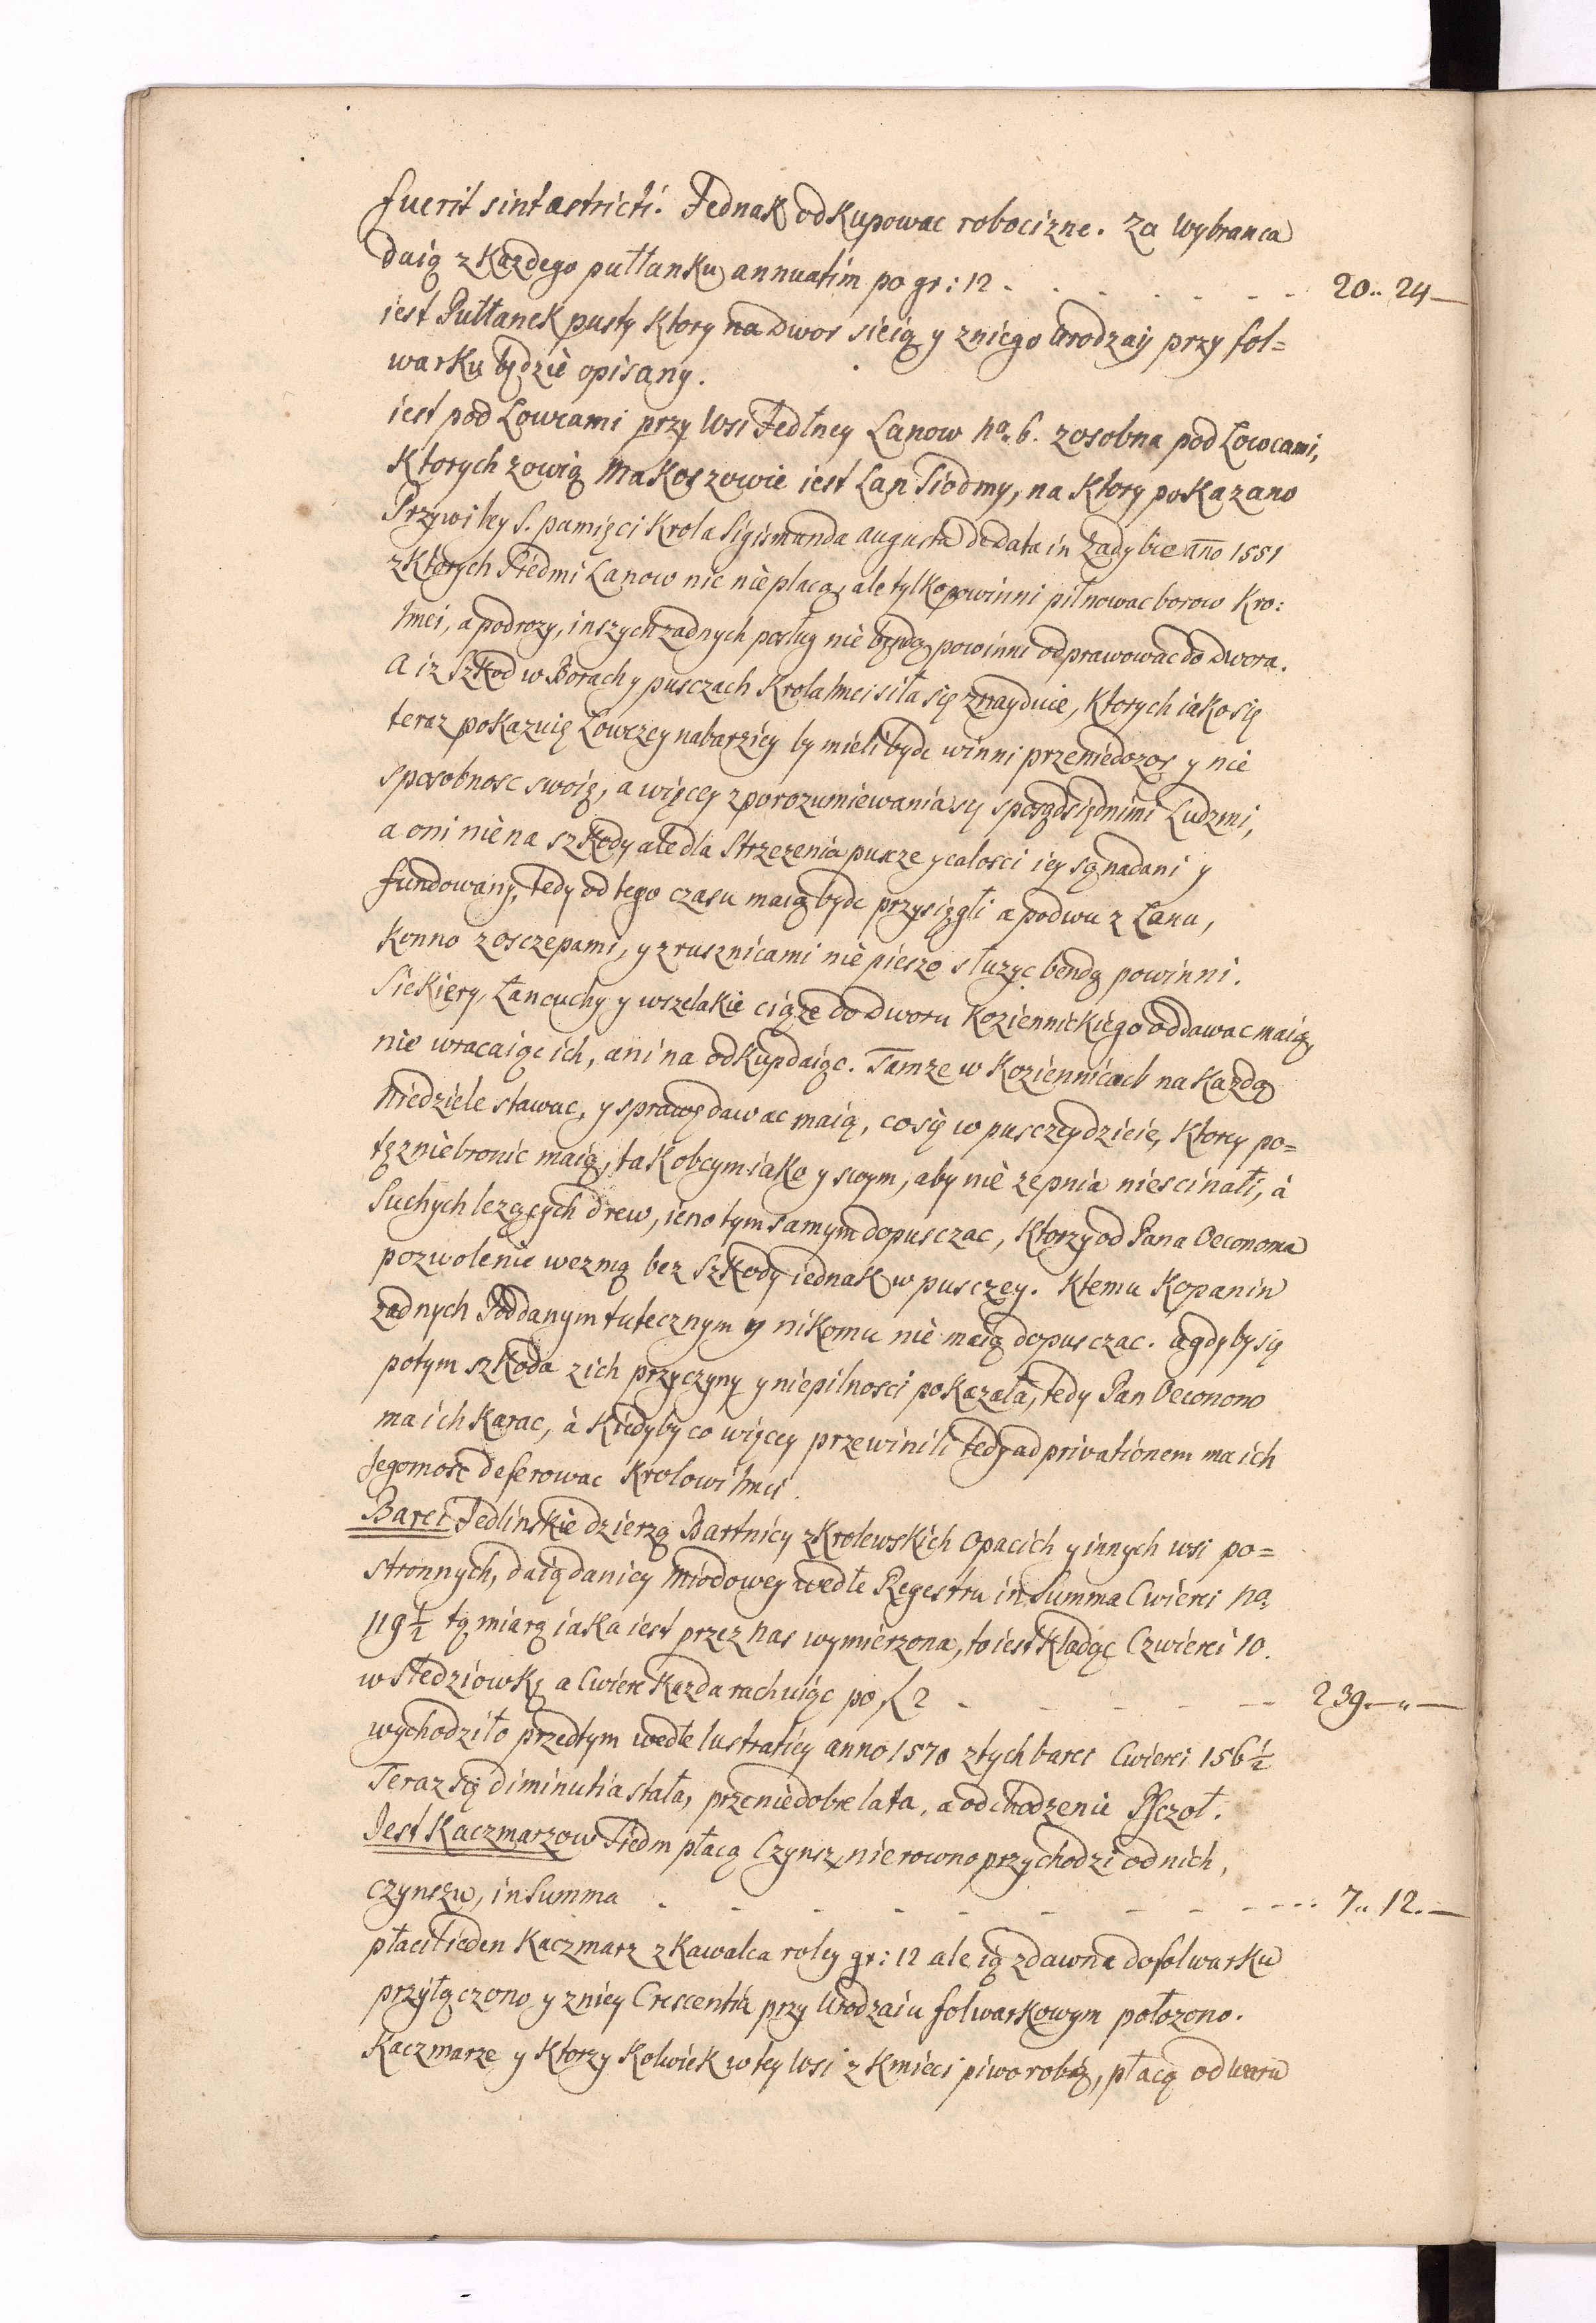 fuerit sint astricti. Jednak odkupowac robocizne. Za Wybranca
daią z każdego pułłanku annuatim po gr: 12 - - - - - - - 20.. 24 —
iest Pułłanek pusty ktory na dwor sieią y zniego Urodzaij przy fol=
warku będzie opisany.
iest pod Łowcami przy Wsi Jedlney Łanow nº. 6. zosobna pod Łowcami,
ktorych zowią Makoszowie iest Łan Siodmy, na ktory pokazano
Przywiley S. pamięci Krola Sigismunda Augusta de data in Radybie Anno 1551
z ktorych Siedmi Łanow nic nie placą, ale tylko powinni pilnowac borow Kro:
Jmci, a podrozy, inszych zadnych posług nie będą powinni odprawowac do dwora.
A iz Szkod w Borach y pusczach Krola Jmci siła się znayduie, ktorych iako się
teraz pokazuię Łowczey nabarziey by mieli bydz winni przeniedozor y nie
sposobnosc swoię, a więcey z porozumiewania się spozgdsiędnimi Ludzmi,
a oni nie na szkody ale dla Strzezenia puscze y całosci iey są nadani y
fundowany, tedy od tego czasu maią bydz przysięgli a po dwu z Łanu,
konno z osczepami, y z rusznicami nie pieszo służyc bendą powinni.
Siekiery, Łancuchy y wszelakie ciąze do Dworu Koziennickiego oddawac maią,
nie wracaiąc ich, ani na odkup daiąc. Tamze w Koziennicach na kazdą
Niedziele stawac, y sprawę dawac maią, co się w pusczey dzieie, ktorey po=
tęznie bronic maią, tak obcym iako y swym, aby nie zepnia niescinali, à
Suchych lezących drew, ieno tym samym dopusczac, ktorzy od Pana Oeconoma
pozwolenie wezmą bez Szkody iednak w pusczey. Ktemu Kopanin
zadnych Poddanym tutecznym y nikomu nie maią dopusczac. Agdyby się
potym szkoda z ich przyczyny y niepilnosci pokazała, tedy Pan Oeconomo
ma ich karac, à kiedyby co więcey przewinili tedy ad privationem ma ich
Jegomosc deferowac Krolowi Jmci.
Barci Jedlinskie dzierzą Bartnicy z Krolewskich Opacich y innych wsi po=
stronnych, daią daniey Miodowey wedle Regestru in Summa Cwierci nº.
119 ½ tą miarą iaka iest przez nas wymierzona, to iest kładąc Czwierci 10.
w Stedziowkę a Cwierc kazda rachuiąc po f 2 - - - - - - 239. — „ —
wychodziło przedtym wedle lustratiey anno 1570 z tych barci Cwierci 156 ½
Teraz się diminutia stała, przeniedobre lata, a odchodzenie Psczoł.
Jest Kaczmarzow Siedm płacą Czynsz, nierowno przychodzi od nich,
czynszu, in Summa - - - - - - - - - - - 7.. 12. —
płacił ieden Kaczmarz z kawalca roley gr: 12 ale ią zdawna do folwarku
przyłączono y zniey Crescentia przy Urodzaiu folwarkowym połozono.
Kaczmarze y ktorzy kolwiek w tey Wsi z kmieci piwo robią, płacą od waru